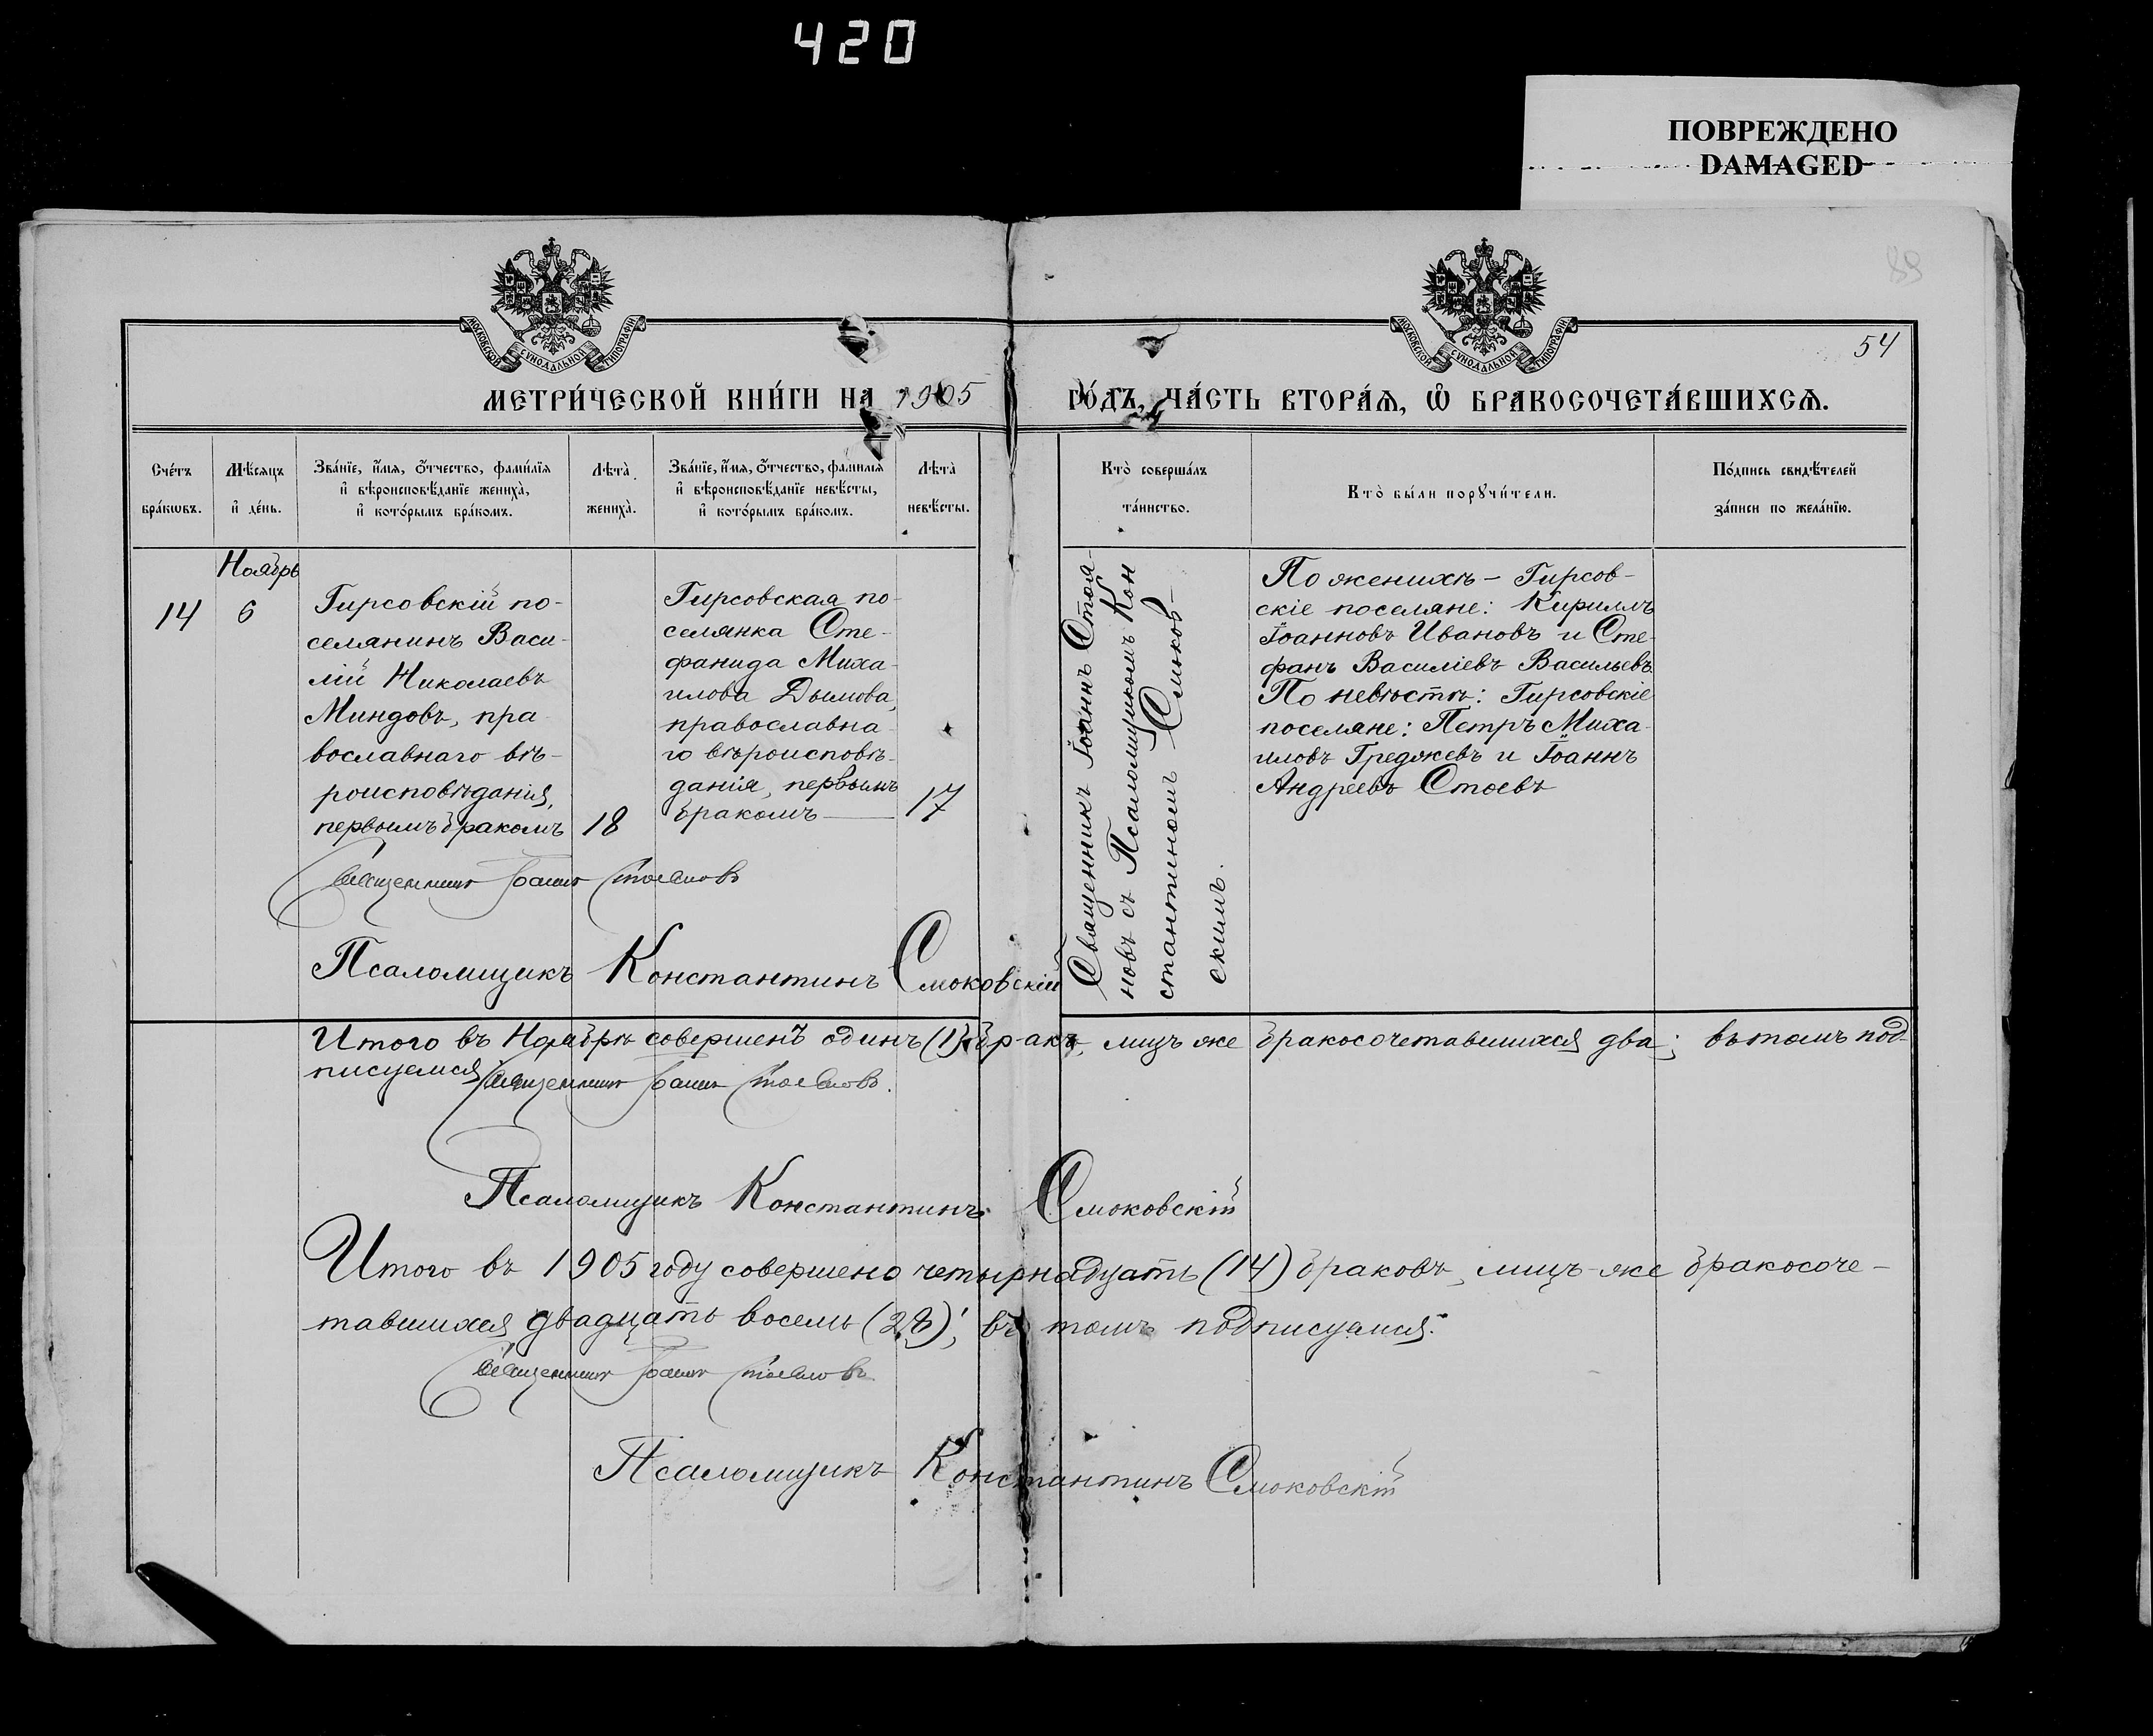 420
ПОВРЕЖДЕНО
DAMAGED
МОСКОВСКОЙ СУНОДАЛЬНОЙ ТИПОГРАФІИ
МОСКОВСКОЙ СУНОДАЛЬНОЙ ТИПОГРАФІИ
54
МЕТРИ́ЧЕСКОЙ КНИ́ГИ НА 1905 ГО́ДЪ, ЧА́СТЬ ВТОРА́Ѧ, Ѡ҆ БРАКОСОЧЕТА́ВШИХСѦ.
Сче́тъ
бра́кѡвъ.
Мѣ́сяцъ
и҆ де́нь.
Зва́нїе, и҆́мя, ѻ҆́тчество, фами́лїя
и҆ вѣроисповѣ́данїе жениха̀,
и҆ кото́рымъ бра́комъ.
Лѣта̀
жениха̀.
Зва́нїе, и҆́мя, ѻ҆́тчество, фами́лїя
и҆ вѣроисповѣ́данїе невѣ́сты,
и҆ кото́рымъ бра́комъ.
Лѣта̀
невѣ́сты.
Кто̀ соверша́лъ
та́инство.
Кто̀ бы́ли порꙋчи́тели.
По́дпись свидѣ́телей
за́писи по жела́нїю.
Ноябрь
14
6
Гирсовскій по-
селянинъ Васи-
лій Николаевъ
Миндовъ, пра-
вославнаго вѣ-
роисповѣданія,
первымъ бракомъ
18
Гирсовская по-
селянка Сте-
фанида Миха-
илова Дымова,
православна-
го вѣроисповѣ-
данія, первымъ
бракомъ
17
Священникъ Іоаннъ Стоя-
новъ съ Псаломщикомъ Кон
стантиномъ Смоков-
скимъ.
По женихѣ - Гирсов-
скіе поселяне: Кириллъ
Іоанновъ Ивановъ и Сте-
фанъ Василіевъ Васильевъ
По невѣстѣ: Гирсовскіе
поселяне: Петръ Миха-
иловъ Греджевъ и Іоаннъ
Андреевъ Стоевъ
Священникъ Іоаннъ Стояновъ
Псаломщикъ Константинъ Смоковскій
Итого въ Ноябрѣ совершенъ одинъ (1) бракъ, лицъ же бракосочетавшихся два; въ томъ под-
писуемся Священникъ Іоаннъ Стояновъ.
Псаломщикъ Константинъ Смоковскій
Итого въ 1905 году совершено четырнадцать (14) браковъ, лицъ-же бракосоче-
тавшихся двадцать восемь (28); въ томъ подписуемся.
Священникъ Іоаннъ Стояновъ
Псаломщикъ Константинъ Смоковскій